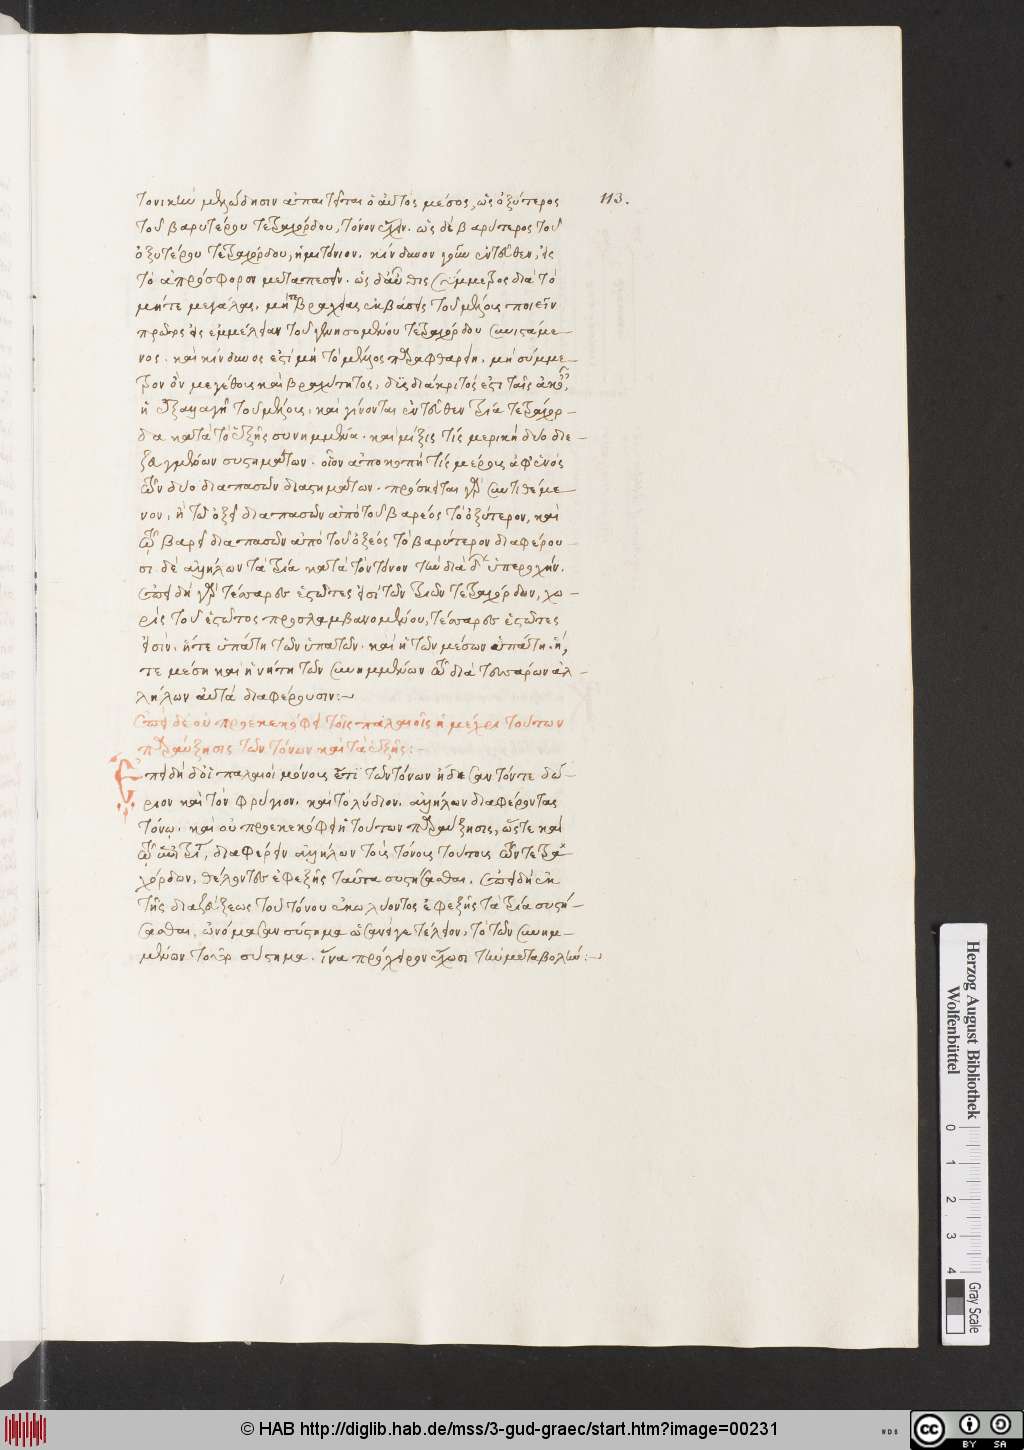 τονικὴν μελώδησιν ἀπαιτεῖται ὁ αὐτὸς μέσος, ὡς ὀξύτερος
113.
τοῦ βαρυτέρου τετραχόρδου, τόνον ἔχειν. ὡς δὲ βαρύτερος τοῦ
ὀξυτέρου τετραχόρδου, ἡμιτόνιον. κίνδυνον γοῦν ἐντεῦθεν, εἰς
τὸ ἀπρόσφορον μεταπεσεῖν. ὡς δ' ἂν τις σύμμετρος διὰ τὸ
μήτε μεγάλας, μήτε βραχείας ἐκβάσεις τοῦ μέλους ποιεῖν
πρὸς εἰς ἐμμέλειαν τοῦ γενησομένου τετραχόρδου συνιστάμε-
νος. καὶ κίνδυνος ἐστὶ μὴ τὸ μέλος παραφθαρείη. μὴ σύμμε-
τρον ὂν μεγέθους καὶ βραχύτητος, δυσδιάκριτός ἐστι ταῖς ἀκοαῖς
ἡ ἐξαλλαγὴ τοῦ μέλους. καὶ γίνονται ἐντεῦθεν τρία τετράχορ-
δα κατὰ τὸ ἑξῆς συνημμένα. καὶ μίξις τίς μερικὴ δύο διε-
ζευγμένων συστημάτων. οἷον ἀποκοπή τίς μέρους ἀφ' ἑνός
τῶν δύο διαπασῶν διαστημάτων. πρόσκειται γὰρ συντιθέμε-
νον, ἢ τῷ ὀξεῖ διαπασῶν ἀπὸ τοῦ βαρέος τὸ ὀξύτερον, καὶ
τῷ βαρεῖ διαπασῶν ἀπὸ τοῦ ὀξέος τὸ βαρύτερον διαφέρου-
σι δὲ ἀλλήλων τὰ τρία κατὰ τὸν τόνον τὴν διὰ δ' ὑπεροχήν.
ἐπειδὴ γὰρ τέσσαρες ἑστῶτες εἰσὶ τῶν τριῶν τετραχόρδων, χω-
ρὶς τοῦ ἑστῶτος προσλαμβανομένου, τέσσαρες ἑστῶτες
εἰσίν. ἥτε ὑπάτη τῶν ὑπάτων. καὶ ἡ τῶν μέσων ὑπάτη. ἥ,
τε μέση καὶ ἡ νήτη τῶν συνημμένων τῷ διὰ τεσσάρων ἀλ-
λήλων αὐτὰ διαφέρουσιν:~
ἐπεὶ δὲ οὐ προεκεκόφει τοῖς παλαιοῖς ἡ μέχρι τούτων
παραύξησις τῶν τόνων καὶ τὰ ἑξῆς:~
Ἐπειδὴ δ' οἱ παλαιοὶ μόνους ἐπὶ τῶν τόνων ᾔδεσαν τόν τε δώ-
ριον καὶ τὸν φρύγιον. καὶ τὸ λύδιον. ἀλλήλων διαφέροντας
τόνῳ. καὶ οὐ προεκεκόφει ἡ τούτων παραύξησις, ὥστε καὶ
διαφέρειν ἀλλήλων τοὺς τόνους τούτους τῶν τετρα-
χόρδων, θέλοντες ἐφεξῆς ταῦτα συστήσασθαι. ἐπειδὴ ἐκ
τῆς διαζεύξεως τοῦ τόνου ἐκωλύοντος ἐφεξῆς τὰ τρία συστή-
σασθαι, ὠνόμασαν σύστημα ὡσανεί γε τέλειον, τὸ τῶν συνημ-
μένων σύστημα. ἵνα πρόχειρον ἔχωσι τὴν μεταβολήν:~
Herzog August Bibliothek
Wolfenbüttel
0 1 2 3 4
Gray Scale
© HAB http://diglib.hab.de/mss/3-gud-graec/start.htm?image=00231
WDB
cc BY SA